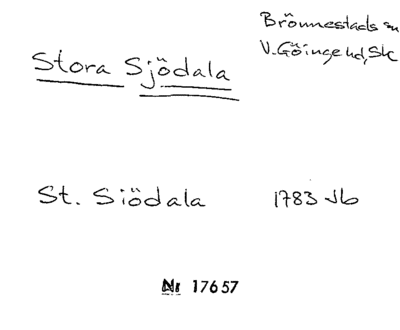 Brönnestads sn
V. Göinge hd, Sk
Stora Sjödala
St. Siödala 1783 Jb
Nr 17657